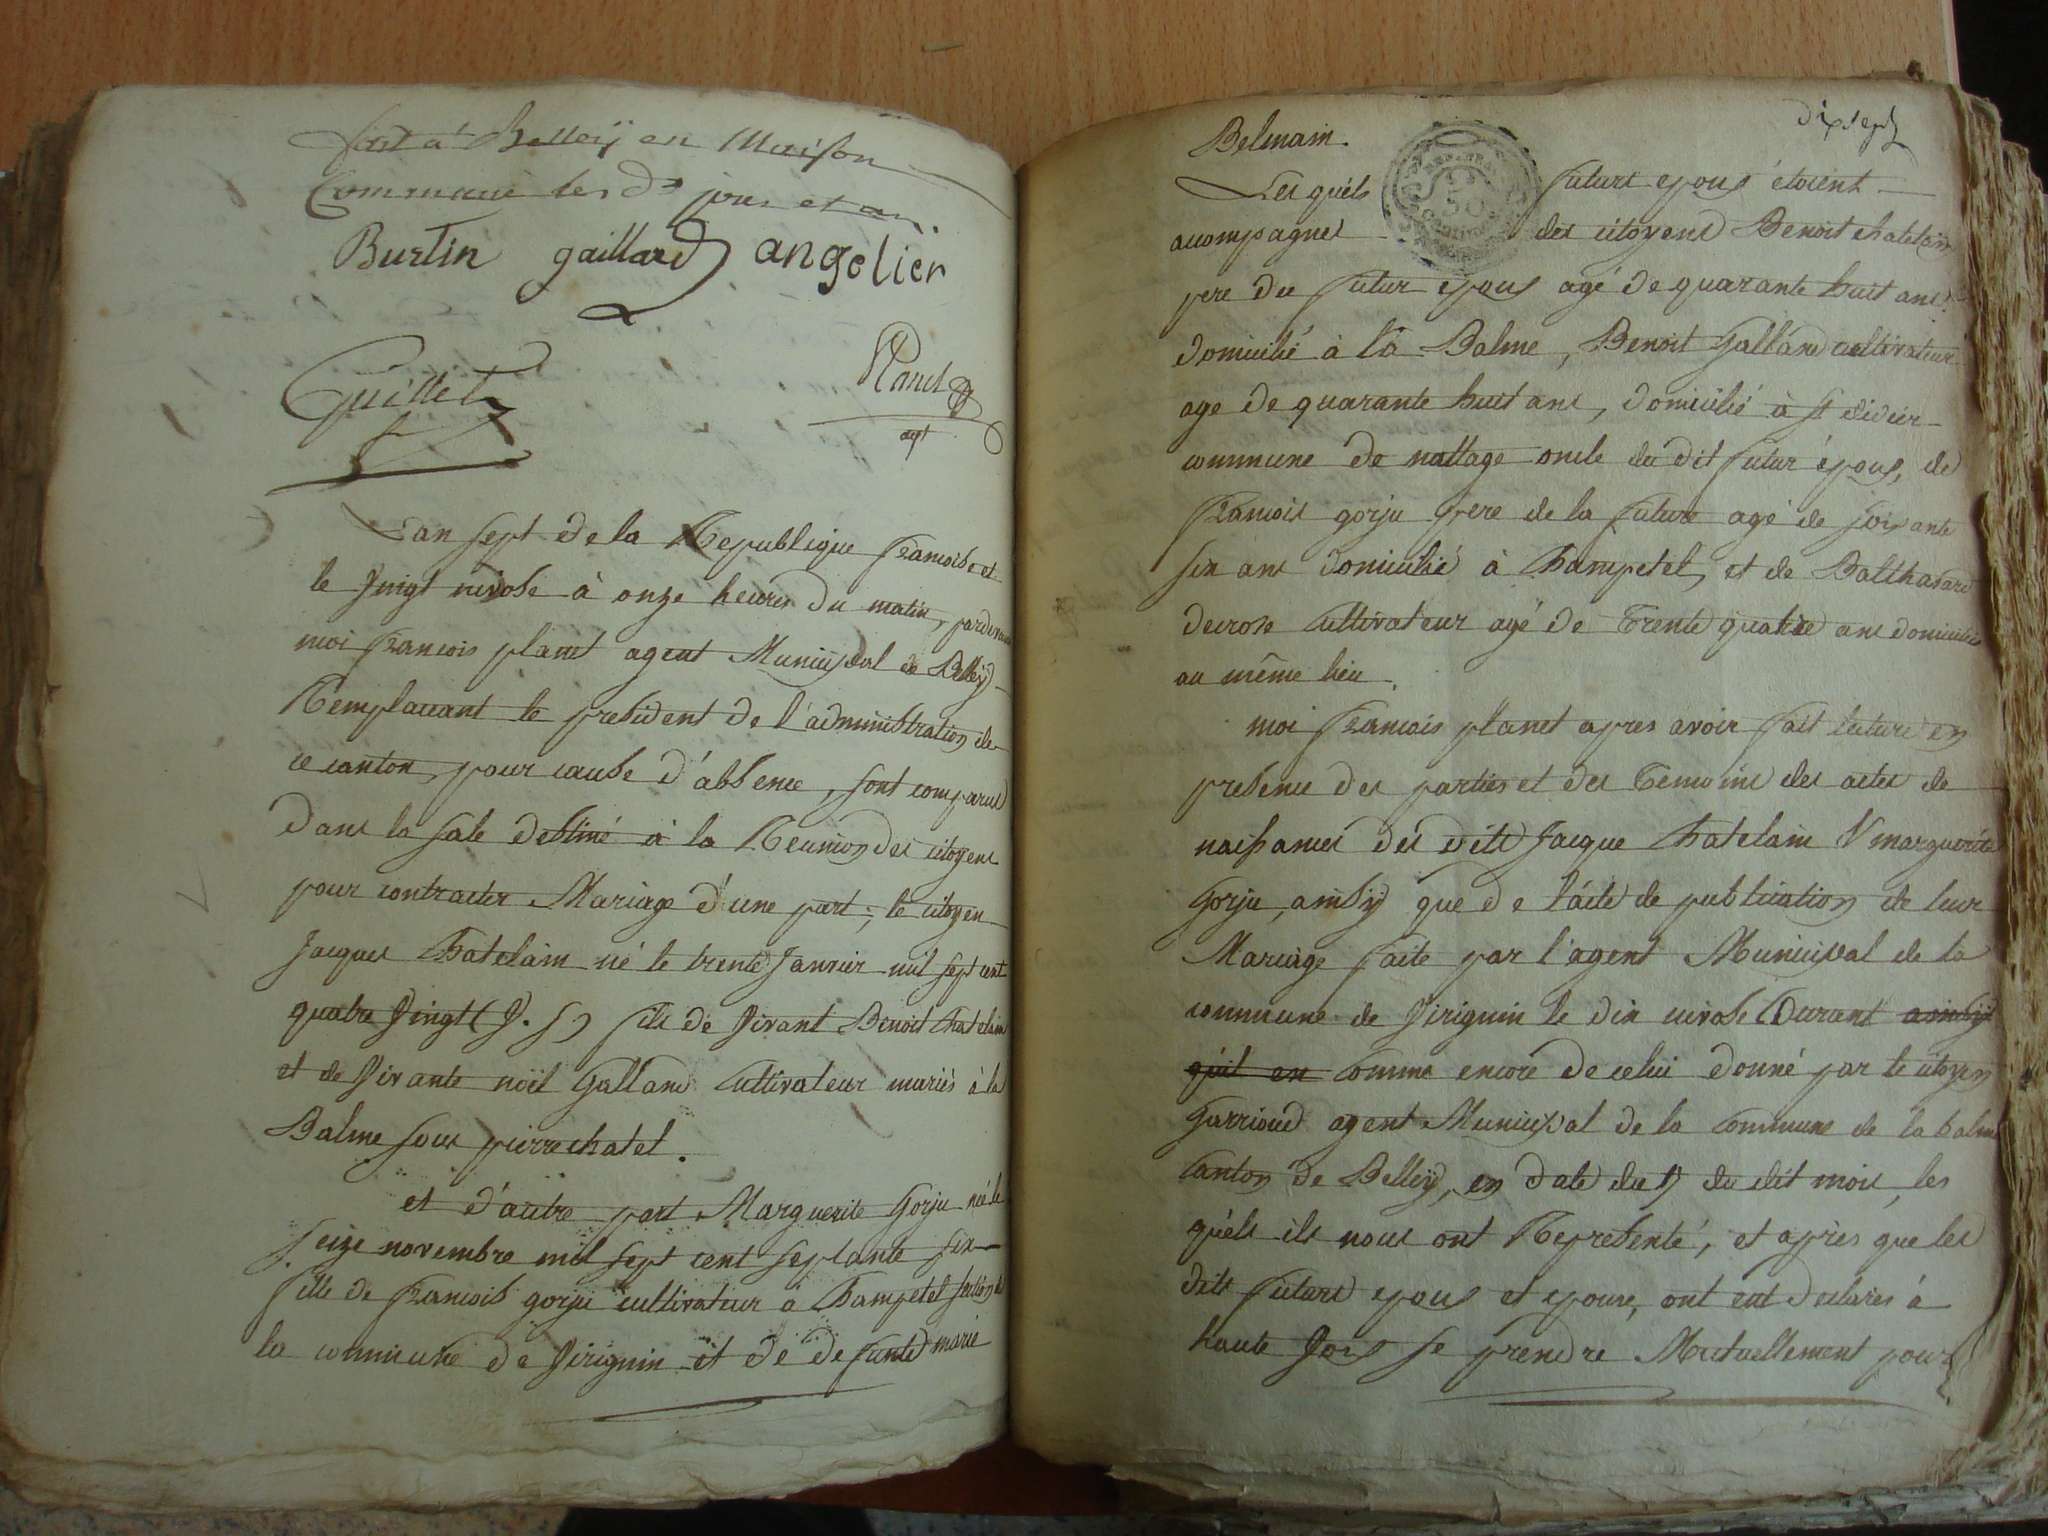 fait à Belleÿ en Maison
Commune les d.s jour et an
Burtin gaillard angelier
Guillet
Planet
agt
Lan sept de la Republique francoise et
le vingt nivose à onze heures du matin, pardevant
moi francois planet agent Municipal de Belleÿ
Remplacant le president de l'administration de
ce canton, pour cause d'absence, sont comparus
dans la sale destiné à la Reunion des citoyens
pour contracter Mariage d'une part, le citoyen
Jacques Chatelain né le trente Janvier mil sept cent
quatre vingt (V. S.) fils de vivant Benoit Chatelain
et de vivante noël Galland Cultivateur mariés à la
Balme sous pierrechatel.
et d'autre part Marguerite Gorju née le
seize novembre mil sept cent septante six
fille de francois gorju cultivateur à Champetel section de
la commune de virignin et de defunte marie
dix sept
Belmain.
Les quels futurs epous étoient
accompagnes des citoyens Benoit chatelain
pere du futur epous agé de quarante huit ans
domicilié à la Balme, Benoit Galland cultivateur
age de quarante huit ans, domicilié à st didier
commune de nattage oncle du dit futur épous, de
francois gorju pere de la future agé de soixante
six ans domicilié à Champetel, et de Balthasard
decrose Cultivateur agé de trente quatre ans domicilié
au même lieu.
moi francois planet apres avoir fait lecture en
presence des parties et des temoins des actes de
naissances des dits Jacque Chatelain & marguerite
Gorju, ainsy que de l'acte de publication de leur
Mariage faite par l'agent Municipal de la
commune de virignin le dix nivose Courant ainsy
qu'il en Comme encore de celui donné par le citoyen
Garrioud agent Municipal de la Commune de la balme
Canton de Belleÿ, en date du du dit mois, les
quels ils nous ont Representé, et après que les
dits futurs epous et epouse, ont eut declarés à
haute vois se prendre Mutuellement pour